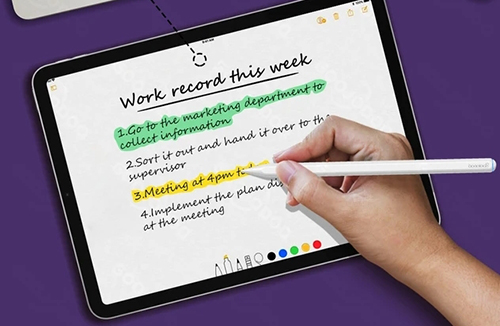 Work record this week
1.Go to the marketing department to
collect information
2.Sort it out and hand it over to the
supervisor
3.Meeting at 4pm
4.Implement the plan
at the meeting